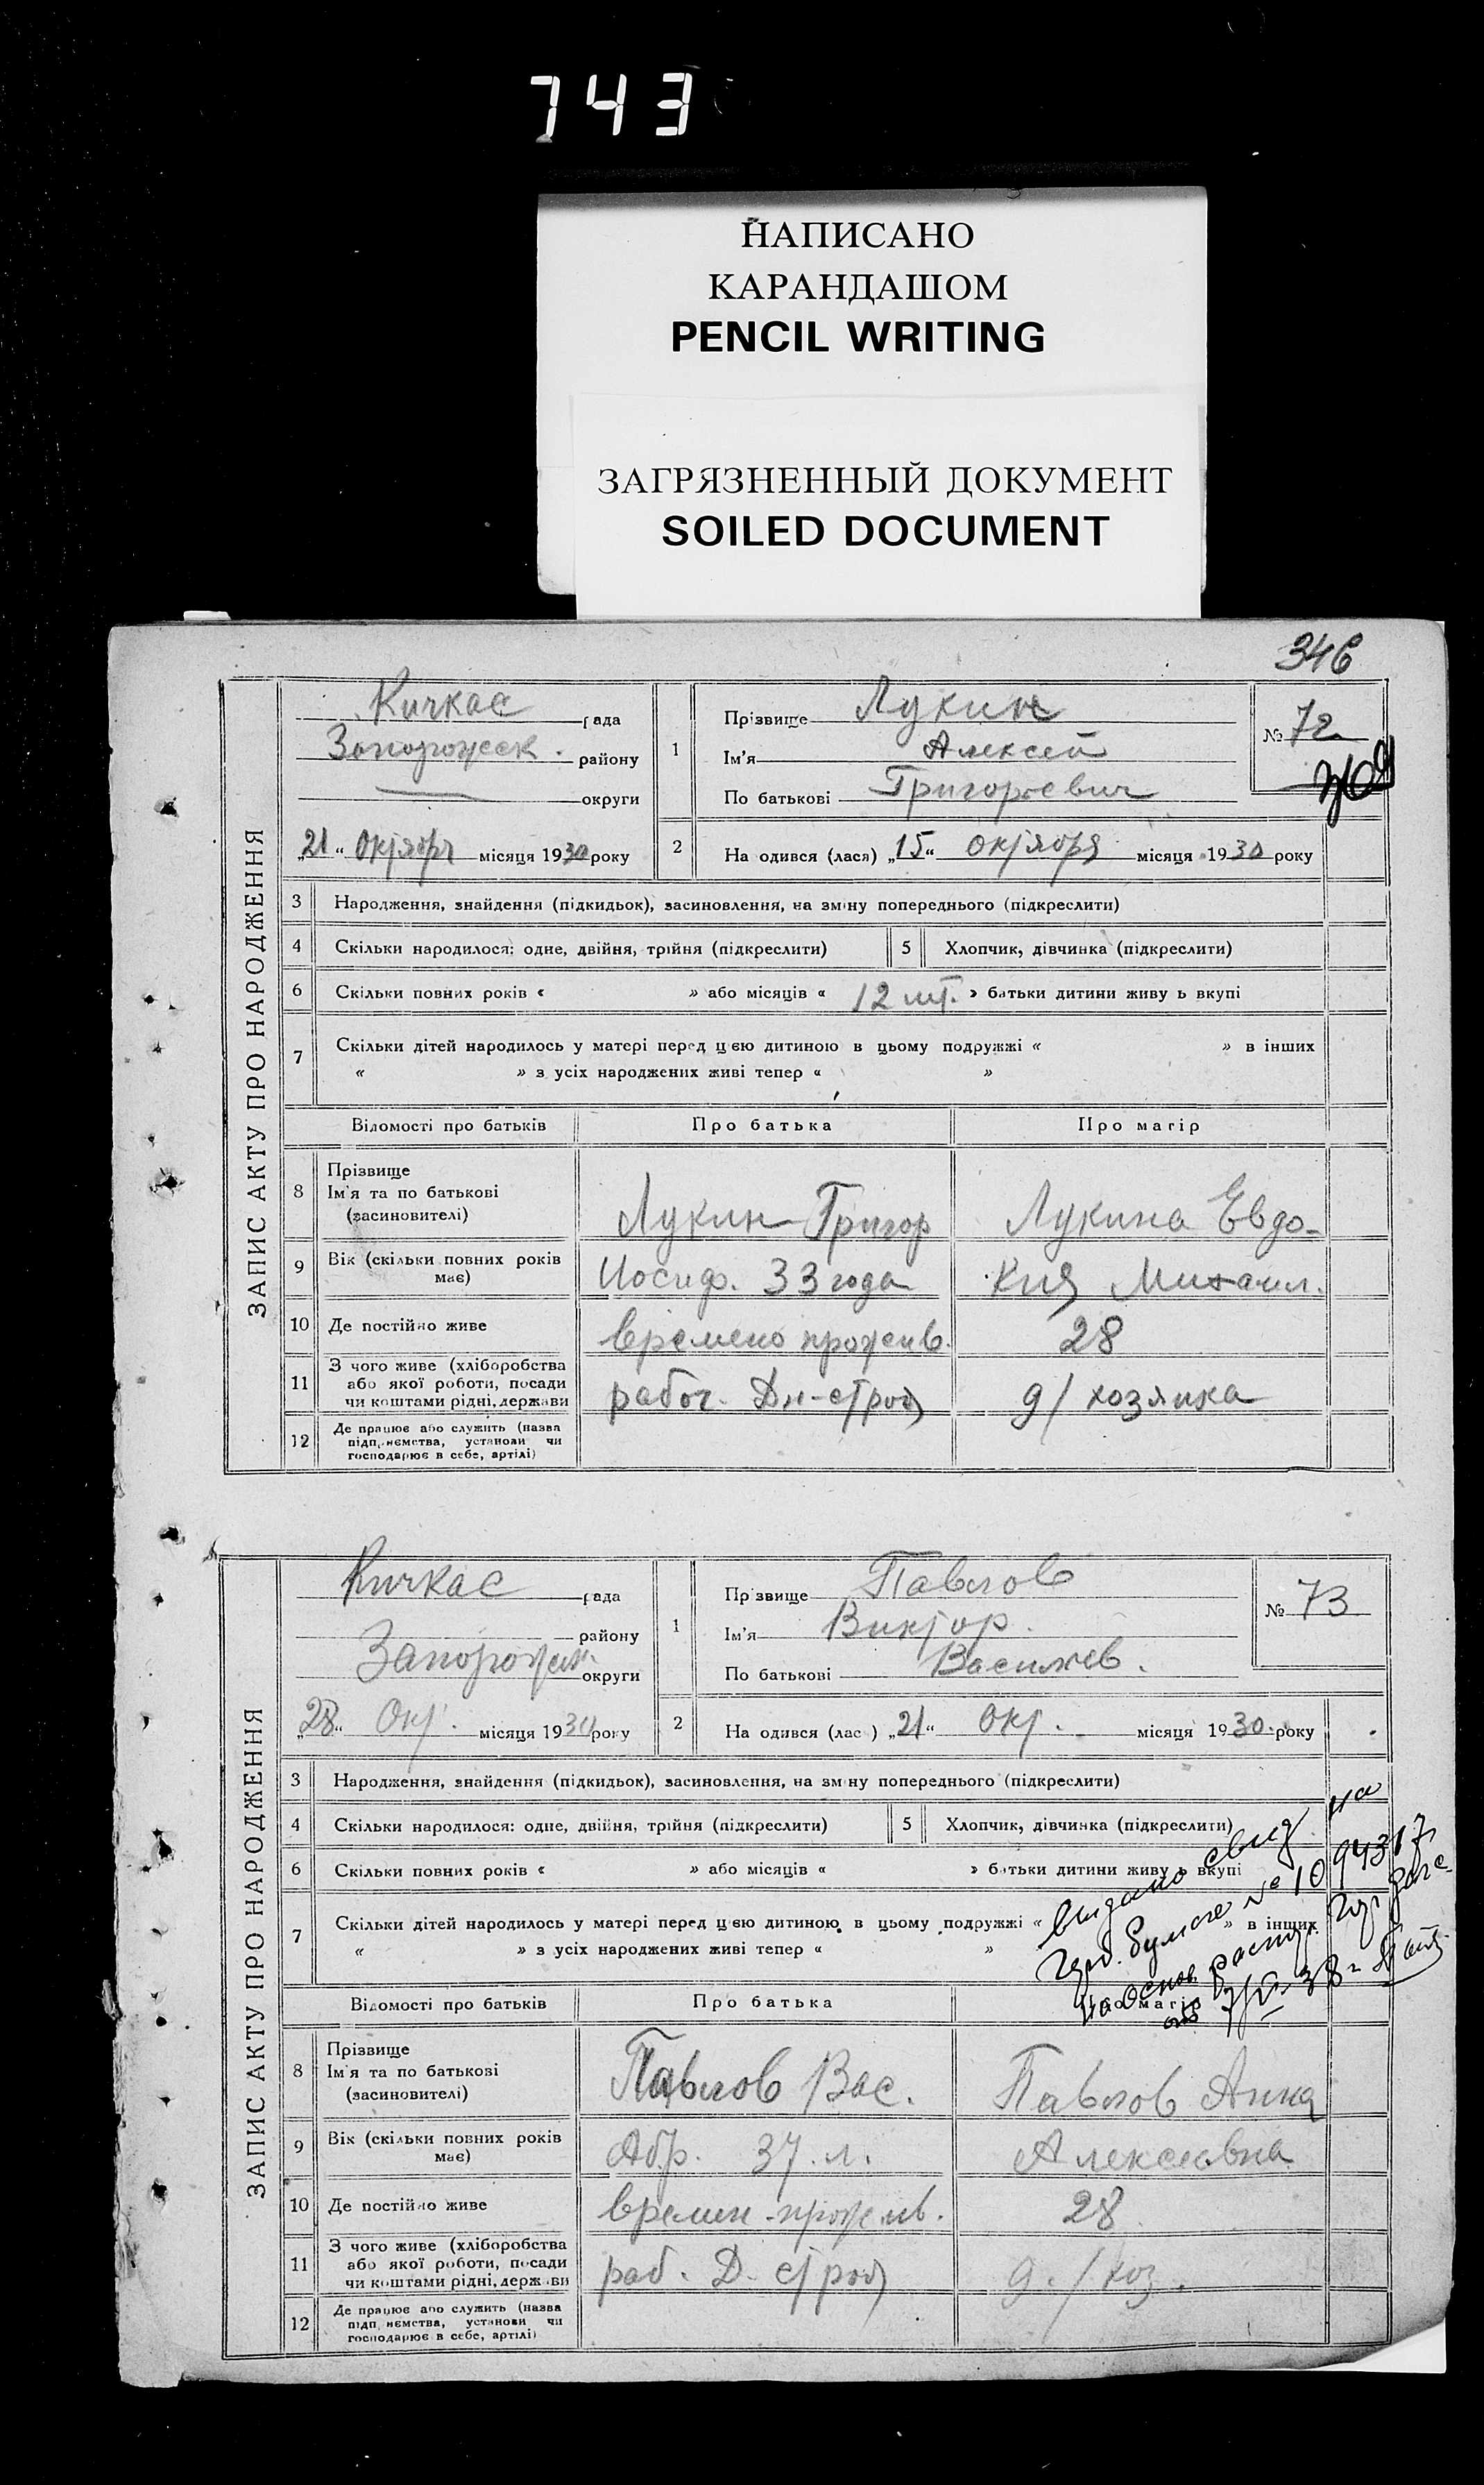 743
НАПИСАНО
КАРАНДАШОМ
PENCIL WRITING
ЗАГРЯЗНЕННЫЙ ДОКУМЕНТ
SOILED DOCUMENT
346
ЗАПИС АКТУ ПРО НАРОДЖЕННЯ
Кичкас рада
Запорожск. району
округи
„21“ октября місяця 1930 року
1 Прізвище Лукин
Ім'я Алексей
По батькові Григорьевич
№ 72
2 На одився (лася) „15“ октября місяця 1930 року
3 Народження, знайдення (підкидьок), засиновлення, на зміну попереднього (підкреслити)
4 Скільки народилося: одне, двійня, трійня (підкреслити) 5 Хлопчик, дівчинка (підкреслити)
6 Скільки повних років « » або місяців « 12 » батьки дитини живу ь вкупі
7 Скільки дітей народилось у матері перед цією дитиною в цьому подружжі « » в інших
« » з усіх народжених живі тепер « »
Відомості про батьків Про батька Про матір
8 Прізвище
Ім'я та по батькові
(засиновителі)
Лукин Григор Лукина Евдо-
9 Вік (скільки повних років
має)
Иосиф. 33 года кия Михаил.
10 Де постійно живе времено прожив. 28
11 З чого живе (хліборобства
або якої роботи, посади
чи коштами рідні, держави
рабоч. Дн-строя д/хозяйка
12 Де працює або служить (назва
підприємства, установи чи
господарює в себе, артілі)
ЗАПИС АКТУ ПРО НАРОДЖЕННЯ
Кичкас рада
району
Запорожск. округи
„28“ Окт. місяця 1930 року
1 Прізвище Павлов
Ім'я Виктор.
По батькові Васильев.
№ 73
2 На одився (лас ) „21“ Окт. місяця 1930. року
3 Народження, знайдення (підкидьок), засиновлення, на зміну попереднього (підкреслити)
4 Скільки народилося: одне, двійня, трійня (підкреслити) 5 Хлопчик, дівчинка (підкреслити)
6 Скільки повних років « » або місяців « » батьки дитини живу ь вкупі
7 Скільки дітей народилось у матері перед цією дитиною в цьому подружжі « » в інших
« » з усіх народжених живі тепер « »
выдано свид на
бумаге № 1094317
на основ. распор. гор
Відомості про батьків Про батька Про матір
8 Прізвище
Ім'я та по батькові
(засиновителі)
Павлов Вас. Павлов Анна
9 Вік (скільки повних років
має)
37. л. Алексеевна
10 Де постійно живе времен. прожив. 28
11 З чого живе (хліборобства
або якої роботи, посади
чи коштами рідні, держави
раб. Д. строя д./хоз.
12 Де працює або служить (назва
підприємства, установи чи
господарює в себе, артілі)